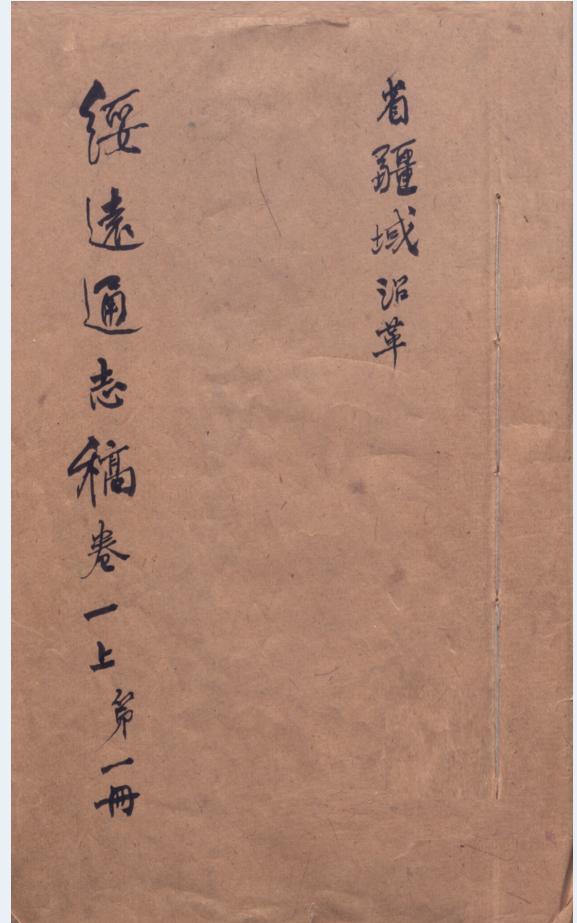 省疆域沿革
綏遠通志稿卷一上第一冊